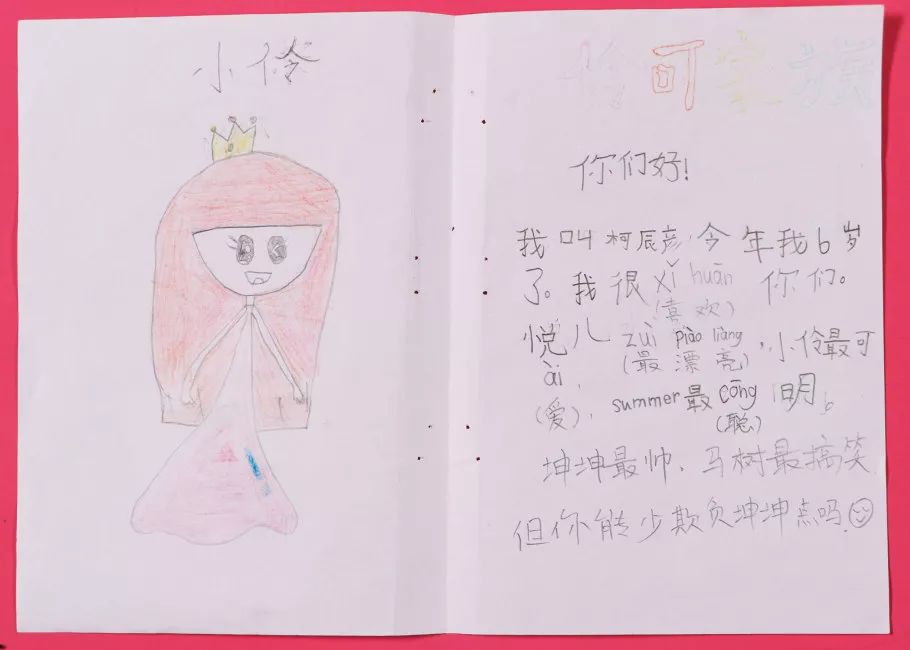 小伶
伶可家族
你们好!
我叫柯辰彦,今年我6岁
了。我很xǐ huān你们。
(喜欢)
悦儿zuì piào liàng,小伶最可
(最漂亮)
ài,
(爱), summer最cōng明。
(聪)
坤坤最帅,马树最搞笑
但你能少欺负坤坤点吗